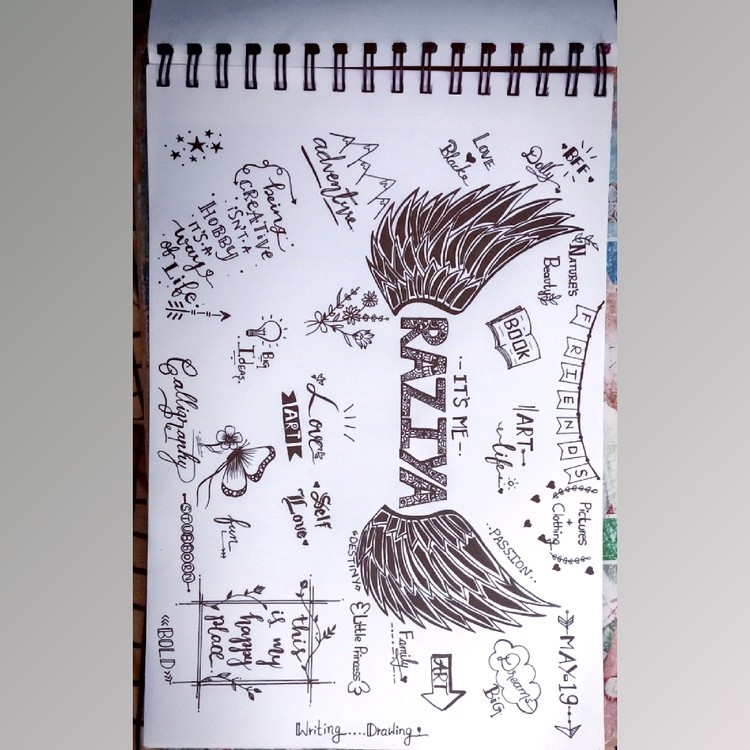 BFF
Dolly
LOVE
Black
NATURE'S
Beauty
FRIENDS
Pictures
+
Clothing
MAY-19
BOOK
ART
life
..PASSION..
Dream
BIG
-IT'S ME-
RAZIYA
ART
Family
Little Princess
"DESTINY"
Writing....Drawing.
adventure
Love
ART
Self
Love
being
CREATIVE
ISN'T A
HOBBY
IT'S A
way
of Life
BIG
IDEAS.
fun
this
is my
happy
place.
Calligraphy
-STUBBORN-
<<BOLD>>